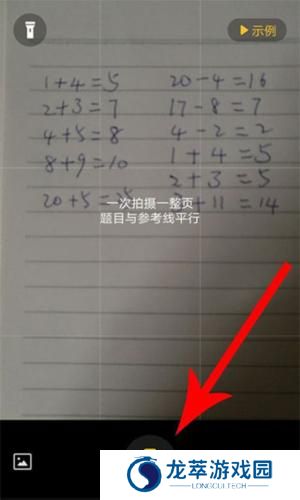 示例
1+4=5
2+3=7
4+5=8
8+9=10
20+5=25
20-4=16
17-8=7
4-2=2
1+4=5
2+3=5
+11=14
一次拍摄一整页
题目与参考线平行
龙萃游戏园
LONGCUITECH